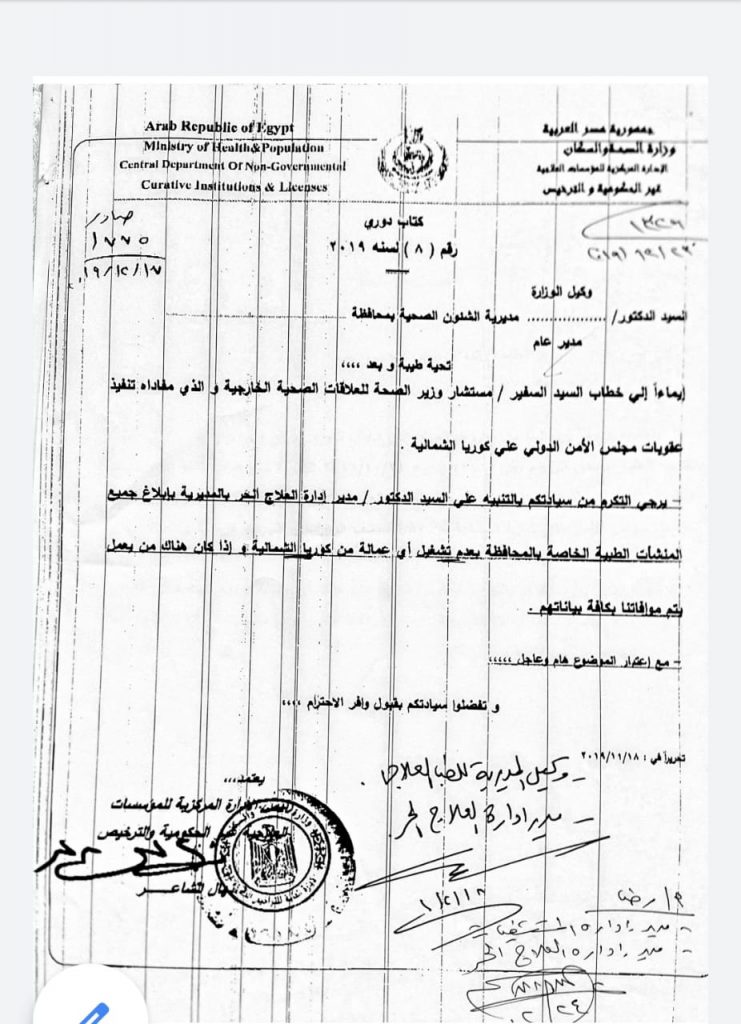 Arab Republic of Egypt
Ministry of Health&Population
Central Department Of Non-Governmental
Curative Institutions & Licenses
جمهورية مصر العربية
وزارة الصحة والسكان
الإدارة المركزية للمؤسسات العلاجية
غير الحكومية و الترخيص
صادر
١٧٧٥
١٩/١٢/١٧
كتاب دوري
رقم ( ٨ ) لسنه ٢٠١٩
وكيل الوزارة
السيد الدكتور/ ................. مديرية الشئون الصحية بمحافظة
مدير عام
تحية طيبة و بعد ،،،،
إيماءاً إلي خطاب السيد السفير / مستشار وزير الصحة للعلاقات الصحية الخارجية و الذي مفاداه تنفيذ
عقوبات مجلس الأمن الدولي علي كوريا الشمالية .
– يرجي التكرم من سيادتكم بالتنبيه علي السيد الدكتور / مدير إدارة العلاج الحر بالمديرية بإبلاغ جميع
المنشآت الطبية الخاصة بالمحافظة بعدم تشغيل أي عمالة من كوريا الشمالية و إذا كان هناك من يعمل
يتم موافاتنا بكافة بياناتهم .
– مع إعتبار الموضوع هام وعاجل ،،،،،
و تفضلوا سيادتكم بقبول وافر الاحترام ،،،،
تحريراً في : ٢٠١٩/١١/١٨
يعتمد،،،
الإدارة المركزية للمؤسسات
العلاجية غير الحكومية والترخيص
الشاعر
– وكيل المديرية للطب العلاجى
– مدير ادارة العلاج الحر
– مدير ادارة المستشفيات
– مدير ادارة العلاج الحر